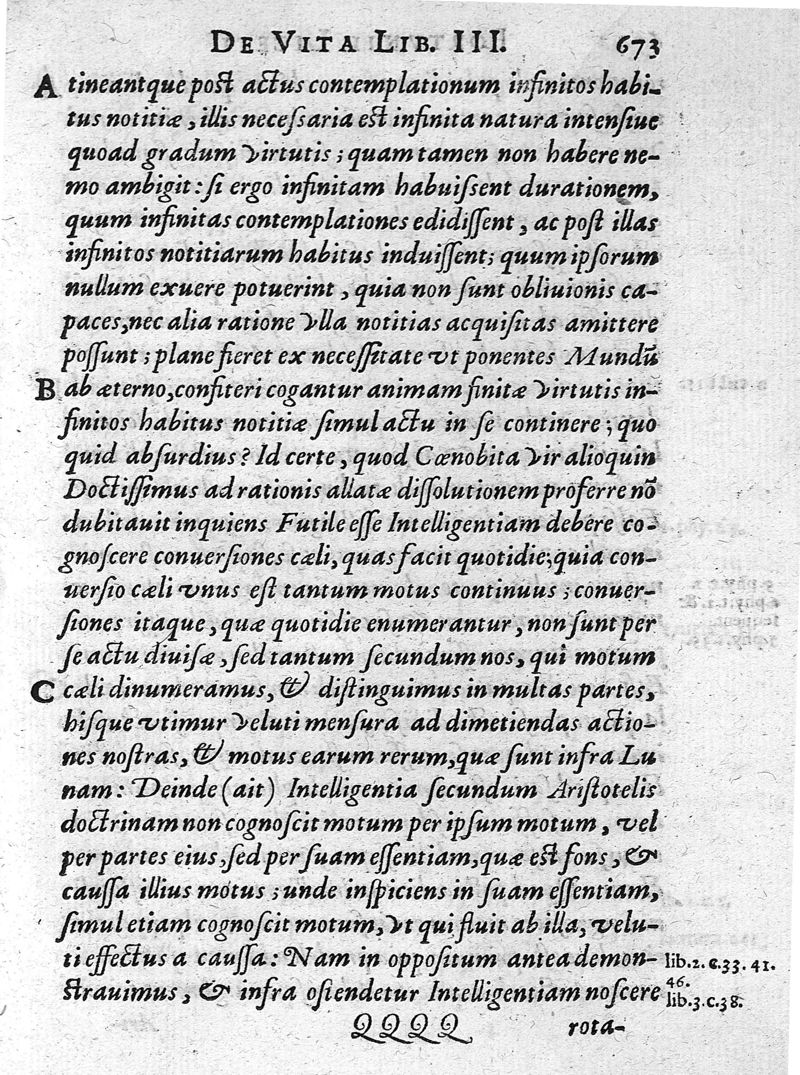 DE VITA LIB. III. 673
A tineantque post actus contemplationum infinitos habi-
tus notitiæ, illis necessaria est infinita natura intensiue
quoad gradum virtutis; quam tamen non habere ne-
mo ambigit: si ergo infinitam habuissent durationem,
quum infinitas contemplationes edidissent, ac post illas
infinitos notitiarum habitus induissent; quum ipsorum
nullum exuere potuerint, quia non sunt obliuionis ca-
paces, nec alia ratione vlla notitias acquisitas amittere
possunt; plane fieret ex necessitate vt ponentes Mundū
B ab æterno, confiteri cogantur animam finitæ virtutis in-
finitos habitus notitiæ simul actu in se continere; quo
quid absurdius? Id certe, quod Cœnobita vir alioquin
Doctissimus ad rationis allatæ dissolutionem proferre nō
dubitauit inquiens Futile esse Intelligentiam debere co-
gnoscere conuersiones cæli, quas facit quotidie; quia con-
uersio cæli vnus est tantum motus continuus; conuer-
siones itaque, quæ quotidie enumerantur, non sunt per
se actu diuisæ, sed tantum secundum nos, qui motum
C cæli dinumeramus, & distinguimus in multas partes,
hisque vtimur veluti mensura ad dimetiendas actio-
nes nostras, & motus earum rerum, quæ sunt infra Lu
nam: Deinde (ait) Intelligentia secundum Aristotelis
doctrinam non cognoscit motum per ipsum motum, vel
per partes eius, sed per suam essentiam, quæ est fons, &
caussa illius motus; unde inspiciens in suam essentiam,
simul etiam cognoscit motum, vt qui fluit ab illa, velu-
ti effectus a caussa: Nam in oppositum antea demon- lib.2.c.33.41.
46.
strauimus, & infra ostendetur Intelligentiam noscere lib.3.c.38.
QQQQ rota-